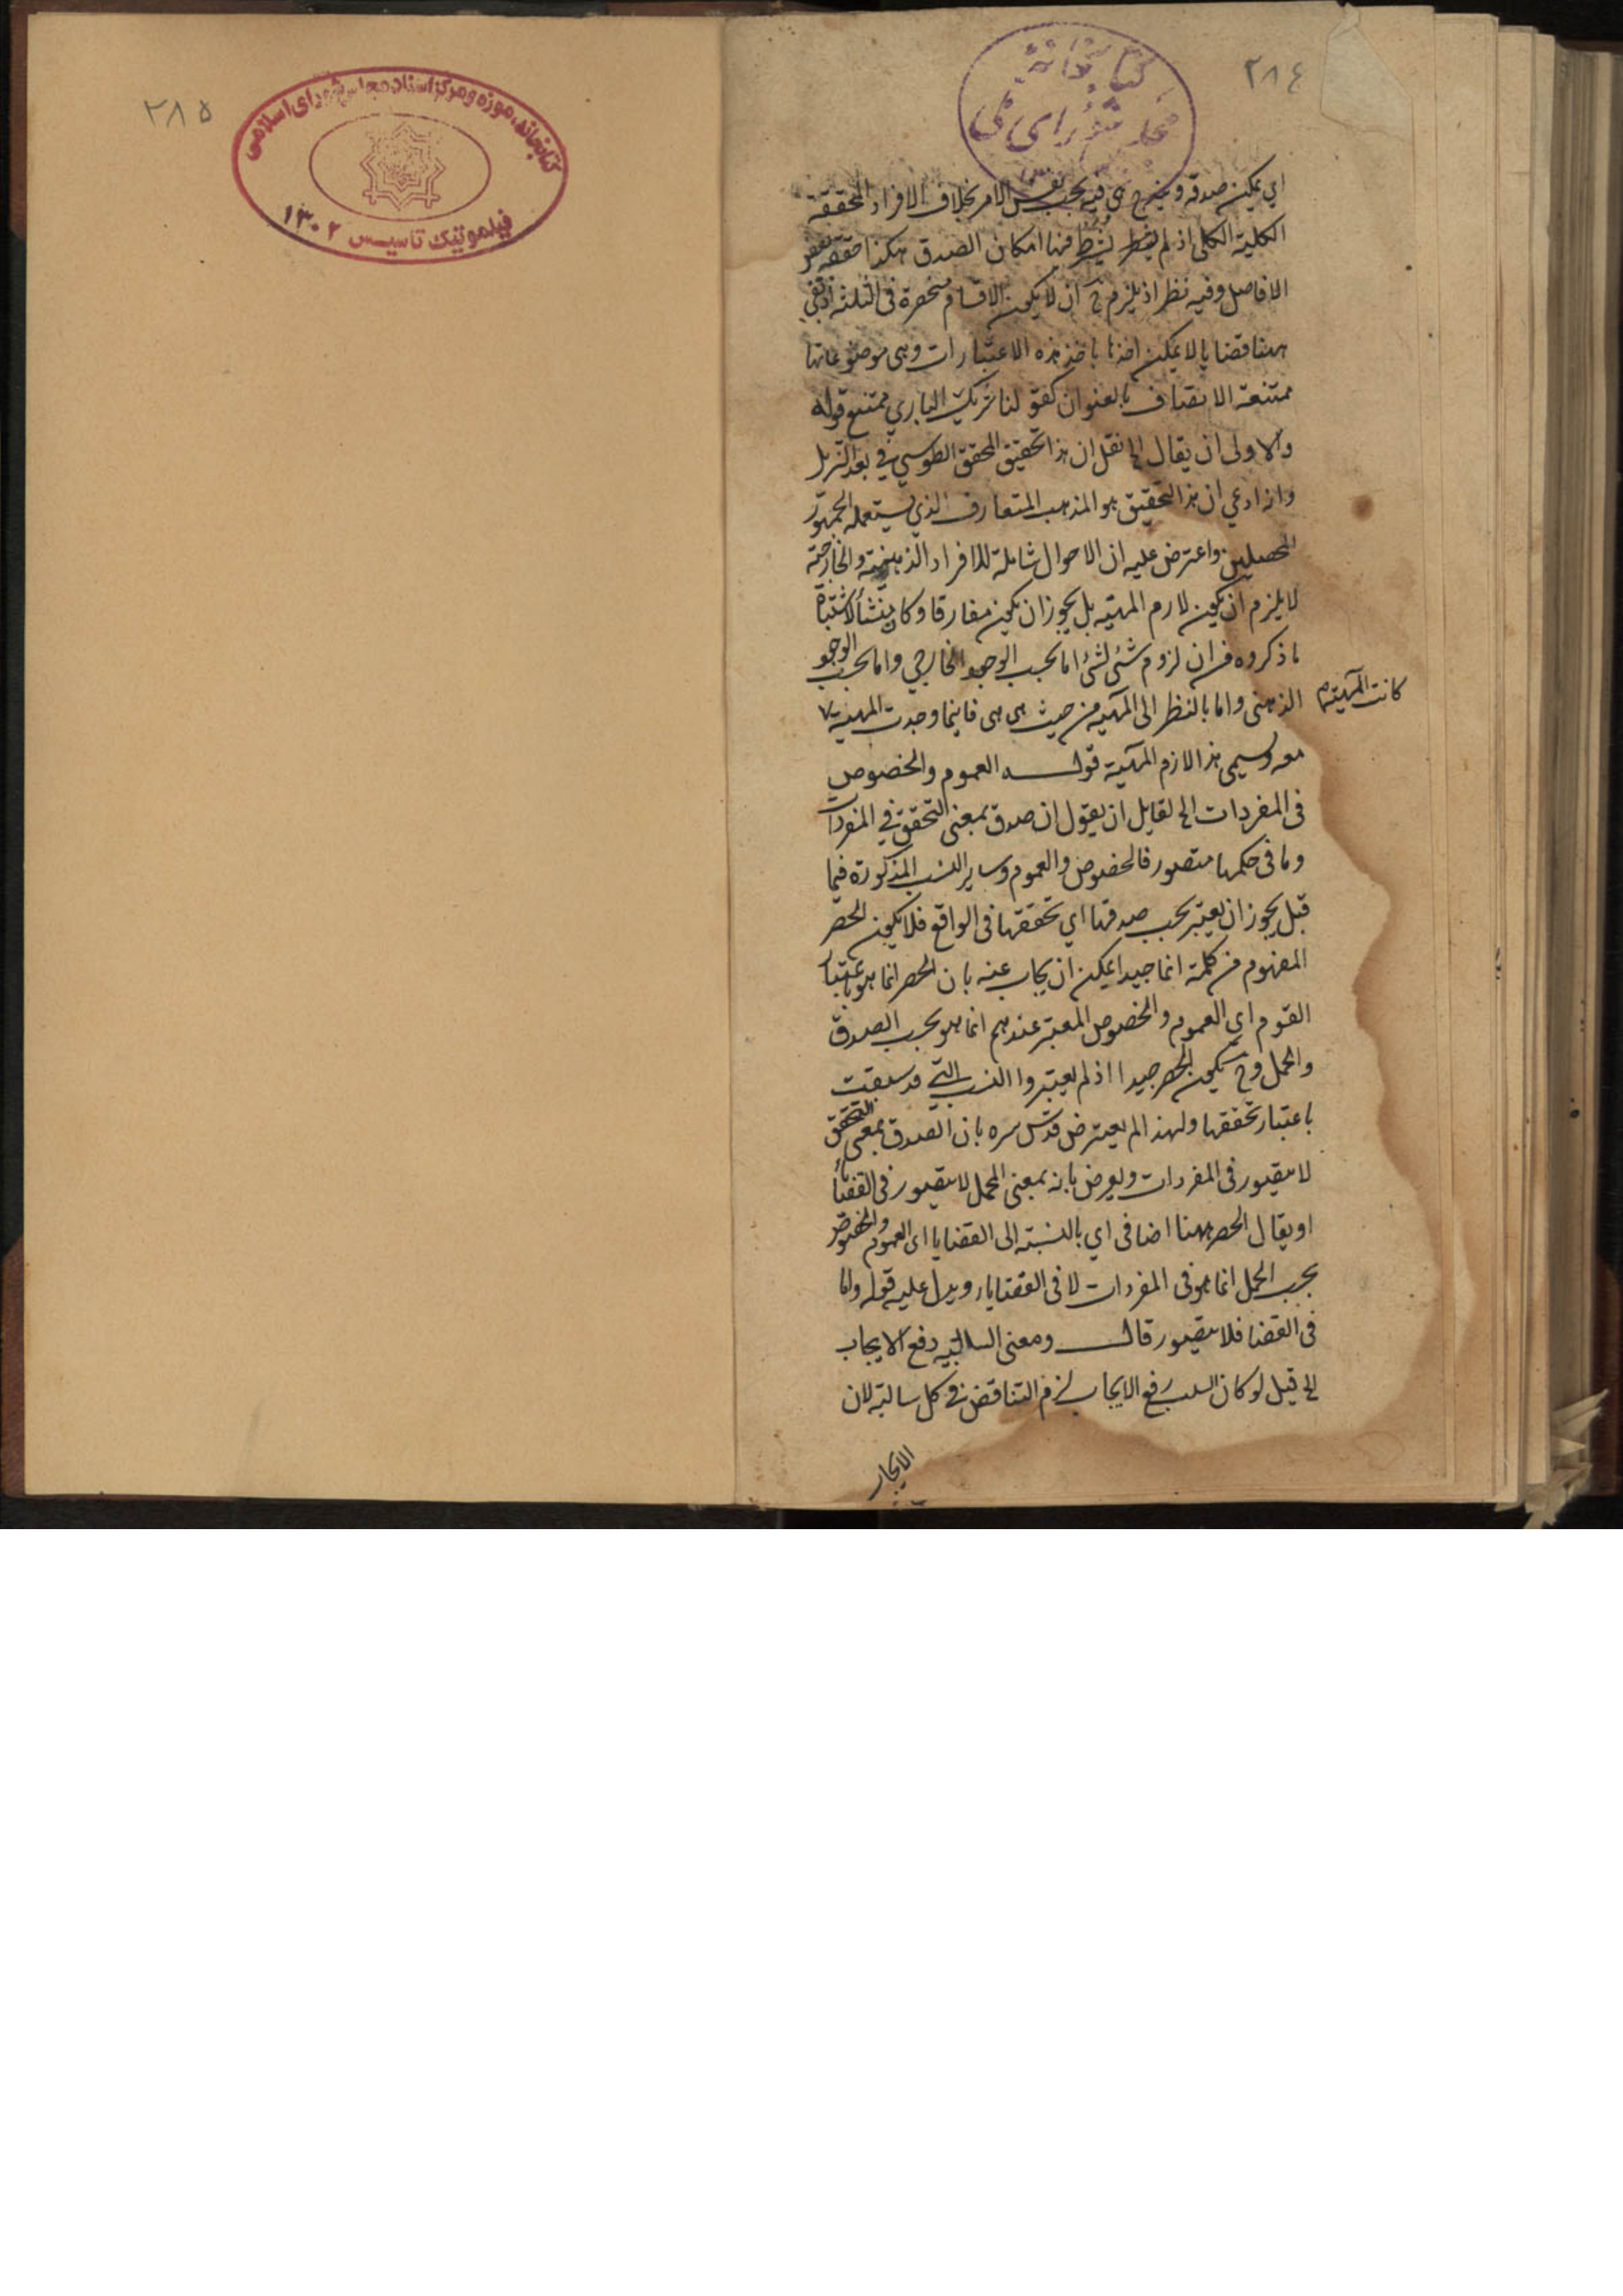 ٢٨٤
كتابخانه
مجلس شورای ملی
اي يمكن صدقه و فيه بحسب نفس الامر بخلاف الافراد المحققة
الكلية الكلى اذ لم يشترط فيها امكان الصدق هكذا حققه بعض
الافاضل وفيه نظر اذ يلزم ح ان لا يكون الاقسام منحصرة فى الثلثة اذ بقي
ههنا قضايا لا يمكن اخذها باخذ هذه الاعتبارات وهى موضوعاتها
ممتنعة الاتصاف بالعنوان كقولنا شريك الباري ممتنع قوله
والاولى ان يقال الخ نقل ان هذا تحقيق المحقق الطوسي في
وانه ادعي ان هذا التحقيق هو المذهب المتعارف الذي يستعمله الجمهور
المحصلين واعترض عليه ان الاحوال شاملة للافراد الذهنية والخارجية
لا يلزم ان يكون لازم المهية بل يجوز ان يكون مفارقا وكان منشأ الاشتباه
ما ذكروه من ان لزوم شئ لشئ اما بحسب الوجود الخارجي واما بحسب الوجود
الذهنى واما بالنظر الى المهية من حيث هى هى فاينما وجدت المهية
كانت المهية
معه ويسمى هذا لازم المهية قوله العموم والخصوص
فى المفردات الخ لقايل ان يقول ان صدق بمعنى التحقق في المفردات
وما فى حكمها متصور فالخصوص والعموم وساير النسب المذكورة فيما
قبل يجوز ان يعتبر بحسب صدقها اي تحققها فى الواقع فلا يكون الحصر
المفهوم من كلمة انما جيدا يمكن ان يجاب عنه بان الحصر انما هو باعتبار
القوم اى العموم والخصوص المعتبر عندهم انما هو بحسب الصدق
والحمل وح يكون الحصر جيدا اذ لم يعتبروا النسب التي قد سبقت
باعتبار تحققها ولهذا لم يعترض قدس سره بان الصدق بمعنى التحقق
لا يتصور فى المفردات ويعرض بانه بمعنى الحمل لا يتصور فى القضايا
او يقال الحصر ههنا اضافى اي بالنسبة الى القضايا اى العموم والخصوص
بحسب الحمل انما هو فى المفردات لا فى القضايا ويدل عليه قوله واما
فى القضا فلا يتصور قال ومعنى السالبة رفع الايجاب
الخ قيل لو كان السلب رفع الايجاب لزم التناقض في كل سالبة لان
الايجاب
٢٨٥
كتابخانه، موزه و مركز اسناد مجلس شورای اسلامی
فیلموتیک تاسیس ۱۳۰۲